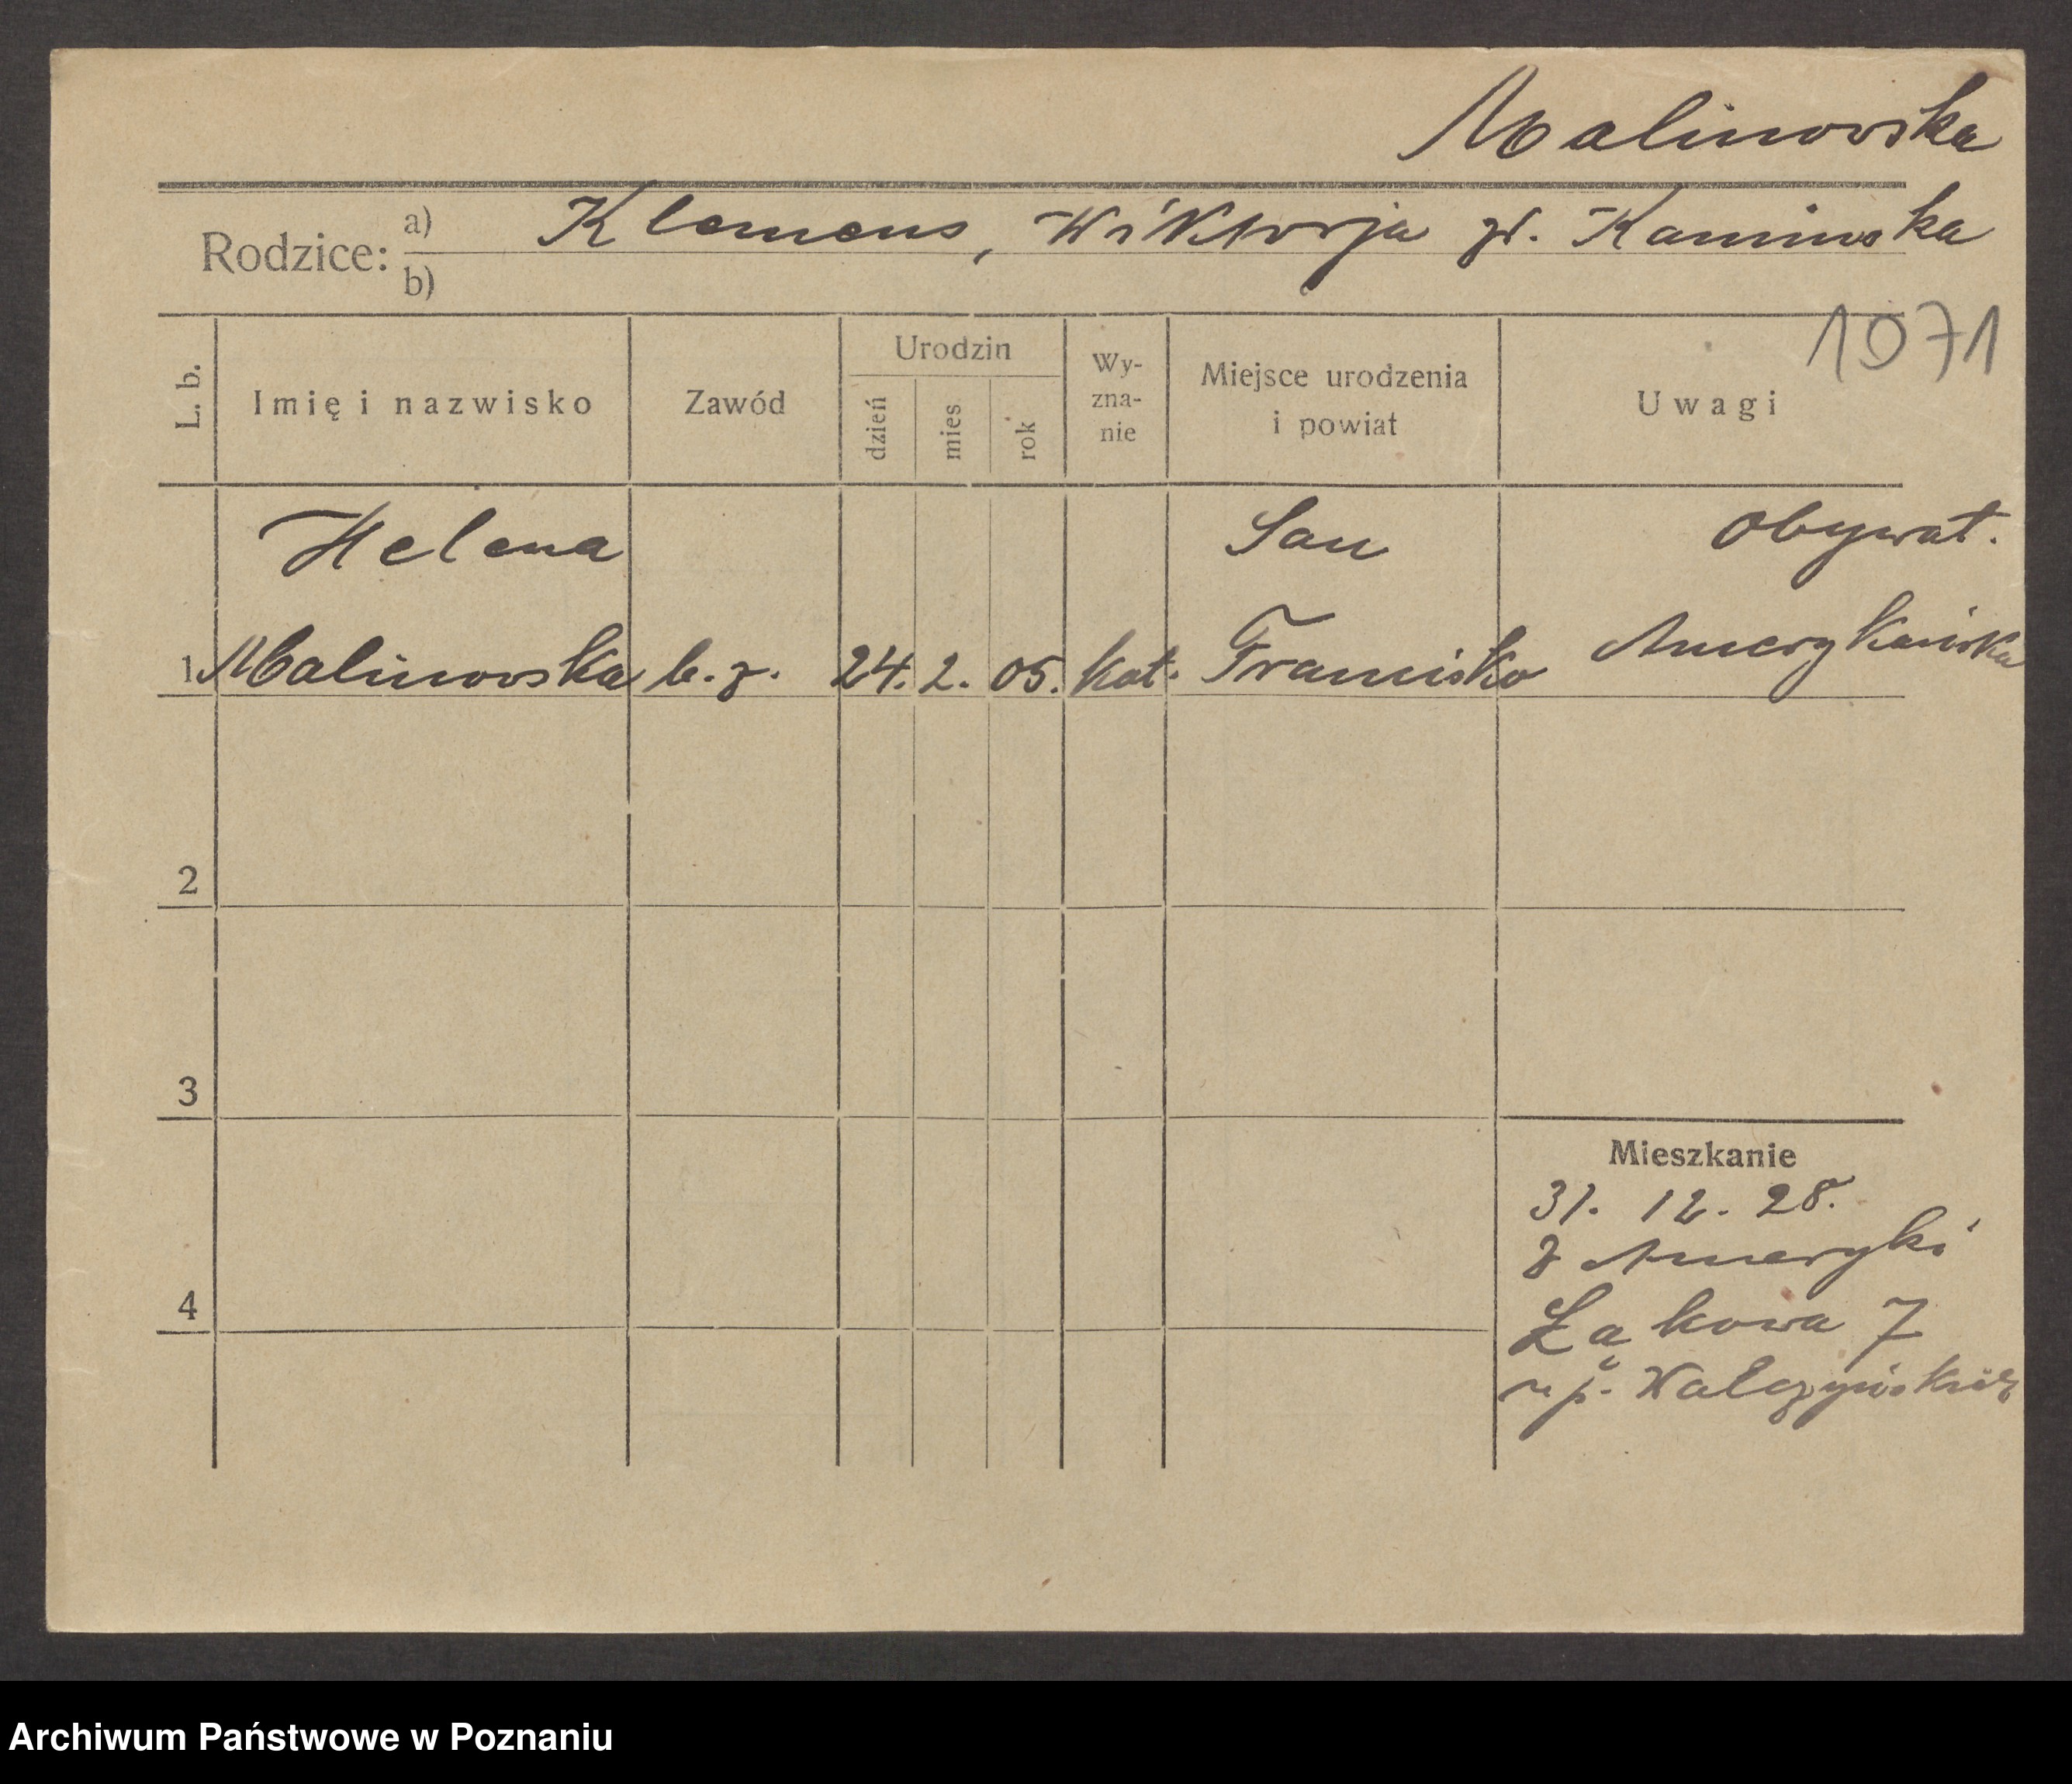 Malinowska
Rodzice: a) Klemens, Wiktorja zd. Kamińska
b)
1971
L. b.
Imię i nazwisko
Zawód
Urodzin
dzień
mies
rok
Wy-
zna-
nie
Miejsce urodzenia
i powiat
Uwagi
Helena San Obywat.
1 Malinowska b. z. 24. 2. 05. kat. Francisko Amerykańska
2
3
Mieszkanie
31. 12. 28.
z Ameryki
4
Łąkowa 7
u p.
Archiwum Państwowe w Poznaniu